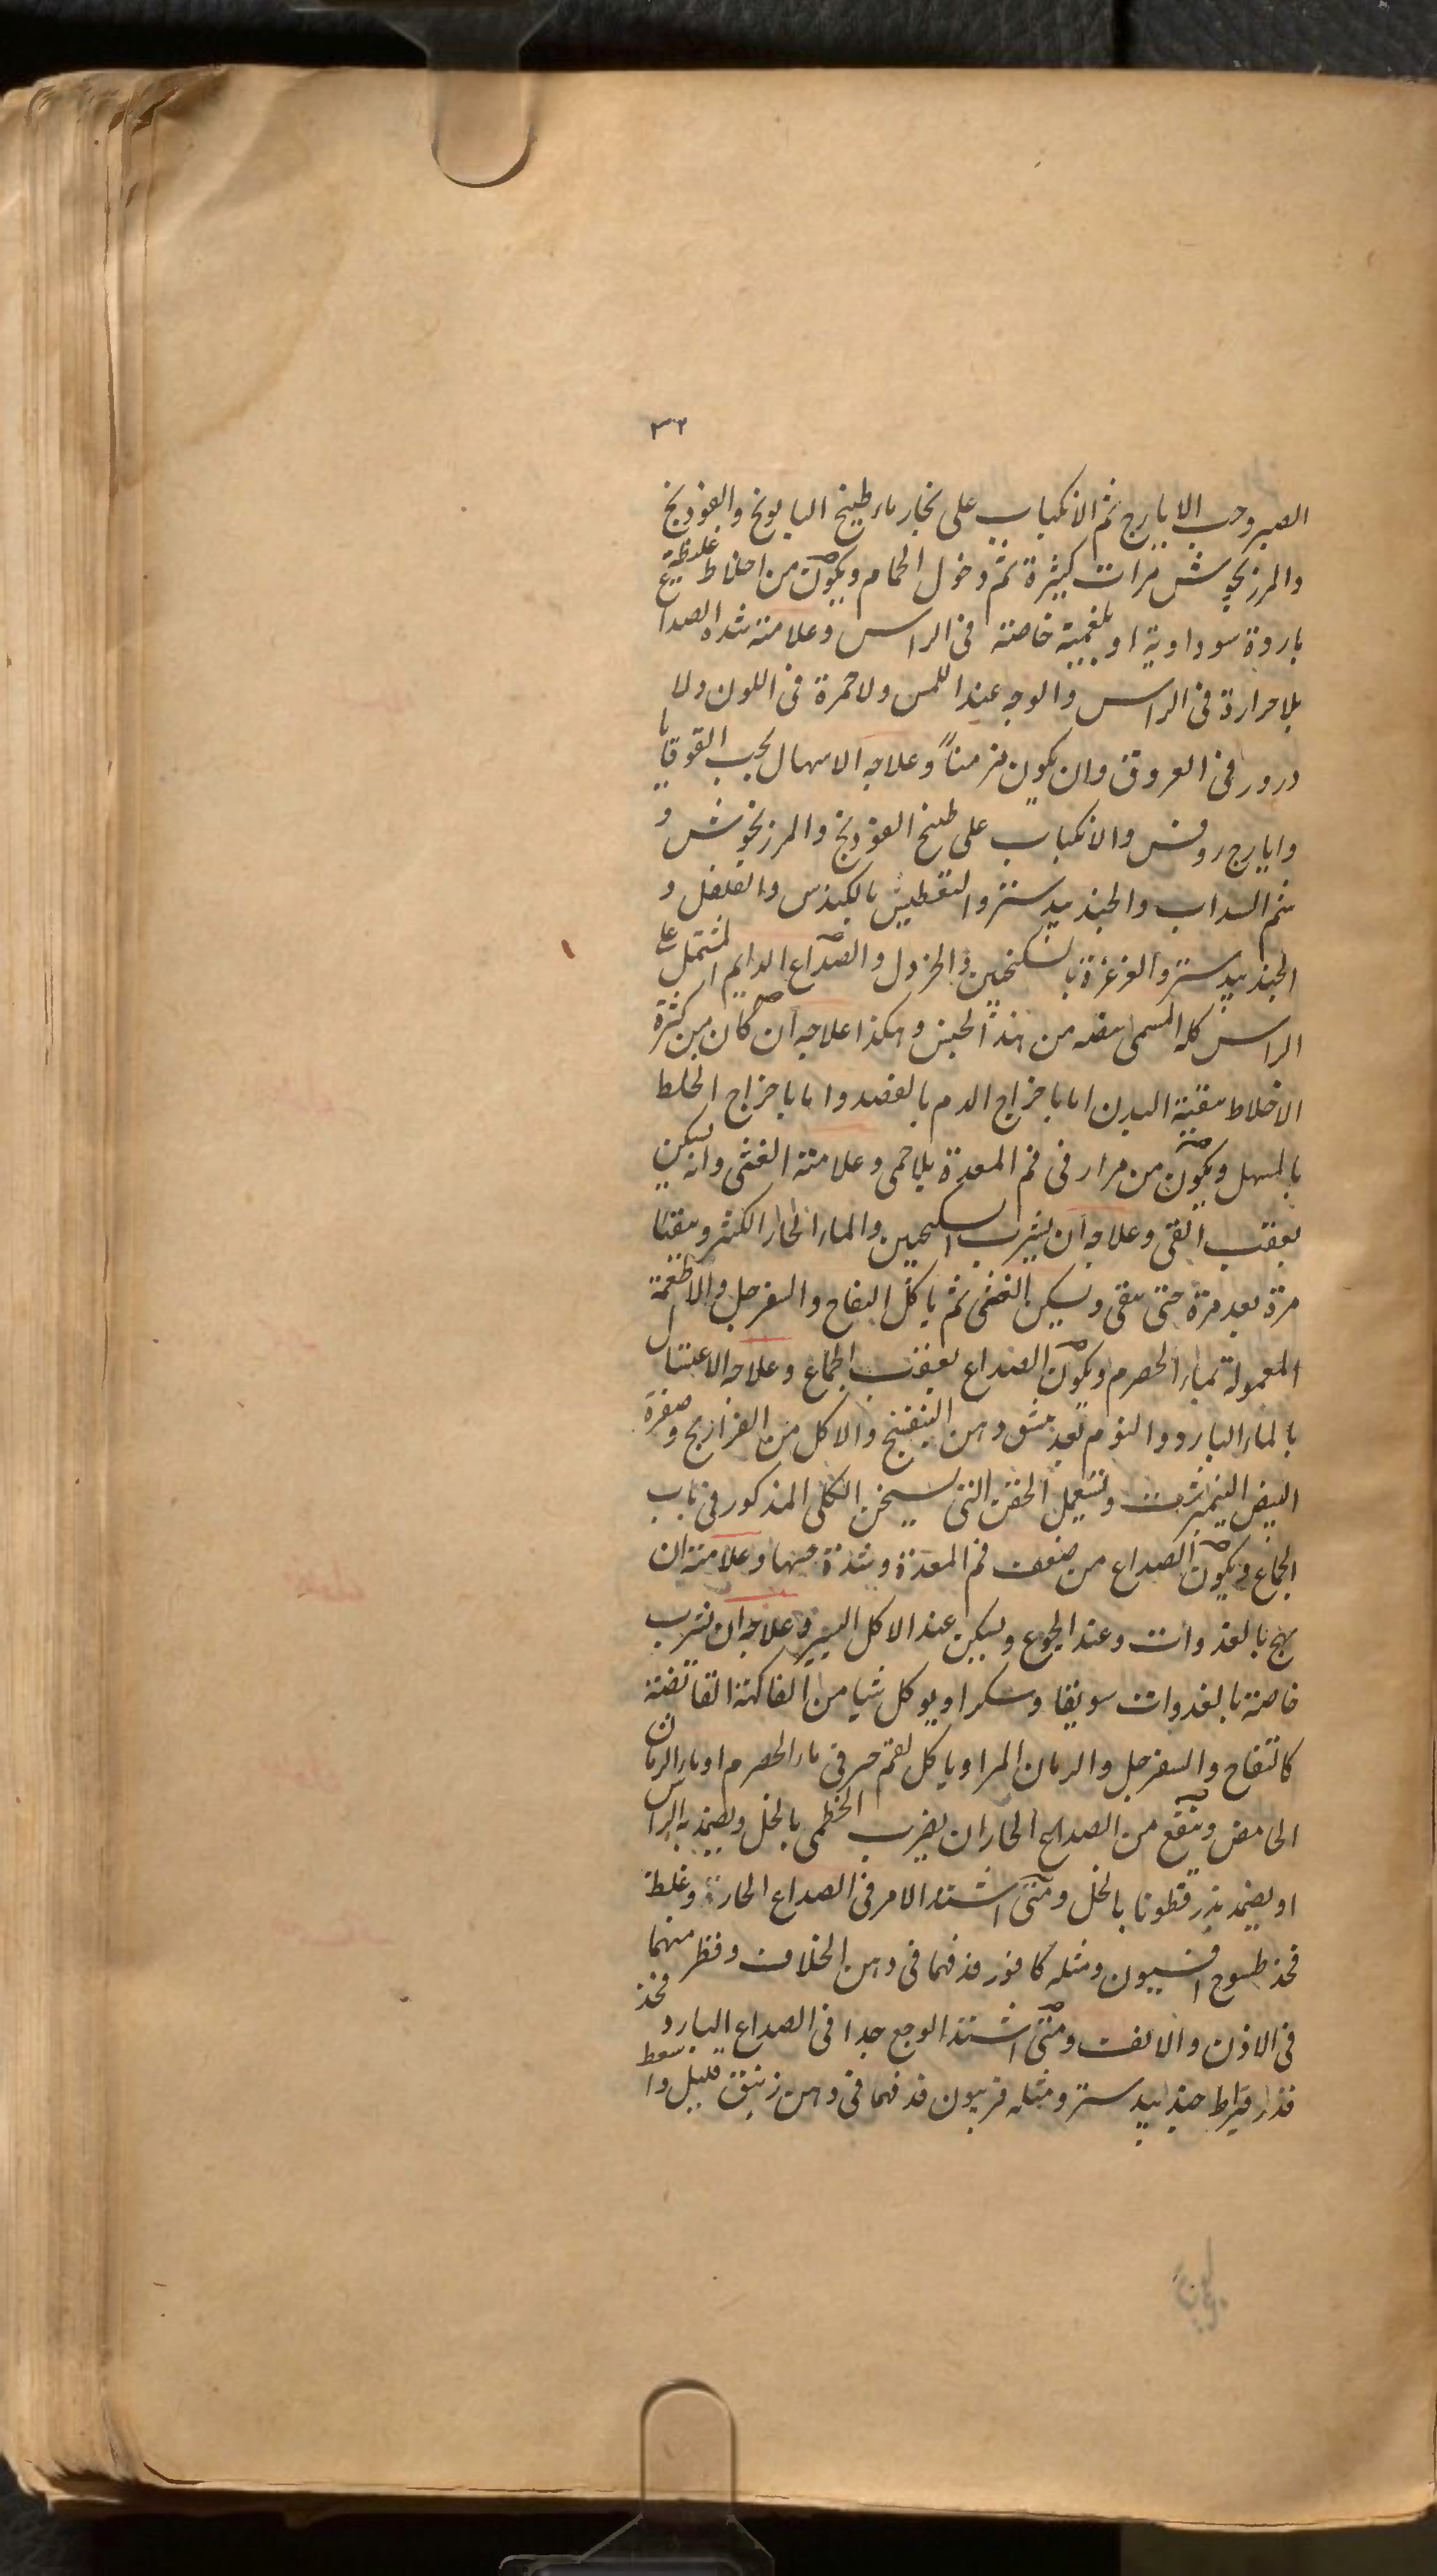 ٣٢
الصبر وحب الايارج ثم الانكباب على بخار ماء طبيخ البابونج والفوذنج
والمرزنجوش مرات كثيرة ثم دخول الحمام ويكون من اخلاط غليظة
باردة سوداوية او بلغمية خاصة فى الراس وعلامته شدة الصداع
بلا حرارة فى الراس والوجه عند اللمس ولا حمرة فى اللون ولا
درور فى العروق وان يكون مزمناً وعلاجه الاسهال بحب القوقايا
وايارج روفس والانكباب على طبيخ الفوذنج والمرزنجوش و
شم السداب والجندبيدستر والتعطيش بالكندس والفلفل و
الجندبيدستر والغرغرة بالسكنجبين والخردل والصداع الدايم المشتمل على
الراس كله المسمى بيضه من هذا الجنس وهكذا علاجه ان كان من كثرة
الاخلاط بنقية البدن اما باخراج الدم بالفصد واما باخراج الخلط
بالمسهل ويكون من مرار فى فم المعدة بلا حمى وعلامته الغثى وانه يسكن
بعقب القى وعلاجه ان يشرب السكنجبين والماء الحار الكثير ويتقيا
مرة بعد مرة حتى ينقى ويسكن الغثى ثم ياكل التفاح والسفرجل والاطعمة
المعمولة بماء الحصرم ويكون الصداع بعقب الجماع وعلاجه الاغتسال
بالماء البارد والنوم بعد تنشق دهن البنفسج والاكل من الفراريج وصفرة
البيض النيمبرشت وتستعمل الحقن التى تسخن الكلى المذكور فى باب
الجماع ويكون الصداع من ضعف فم المعدة وشدة حسها وعلامته ان
يهج بالغدوات وعند الجوع ويسكن عند الاكل اليسير وعلاجه ان يشرب
خاصة بالغدوات سويقا وسكرا ويوكل شيا من الفاكهة القابضة
كالتفاح والسفرجل والرمان المر او ياكل لقم خبز فى ماء الحصرم او ماء الرمان
الحامض وينفع من الصداع الحار ان يضرب الخطمى بالخل ويضمد به الراس
او يضمد ببزر قطونا بالخل ومتى اشتد الامر فى الصداع الحارة وغلظ
فخذ طسوج افيون ومثله كافور فدفهما فى دهن الخلاف وقطر منهما
فى الاذن والانف ومتى اشتد الوجع جدا فى الصداع البارد فخذ
قدر قيراط جندبيدستر ومثله فربيون فدفهما فى دهن زنبق قليل واسعط